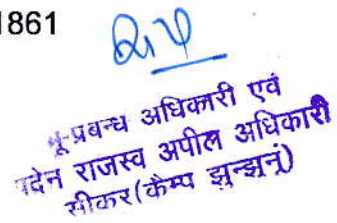 1861
भू-प्रबन्ध अधिकारी एवं
पदेन राजस्व अपील अधिकारी
सीकर(कैम्प झुन्झुनूं)